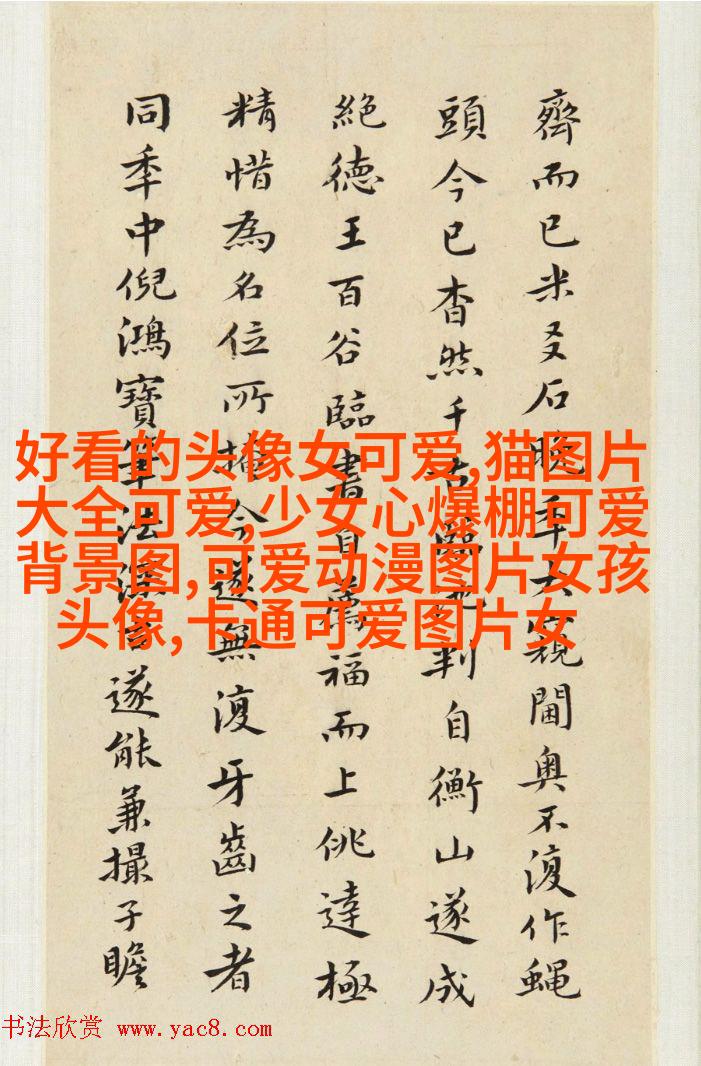 齊而已米友石晚秊大窺閫奥不復作蝇
頭今已杳然千古臨池判自衡山遂成
絶德王百谷臨書自薦福而上佻達極
精惜為名位所掩今遂無復牙齒之者
同秊中倪鴻寶筆法深遂能兼撮子瞻
好看的头像女可爱,猫图片
大全可爱,少女心爆棚可爱
背景图,可爱动漫图片女孩
头像,卡通可爱图片女
书法欣赏 www.yac8.com